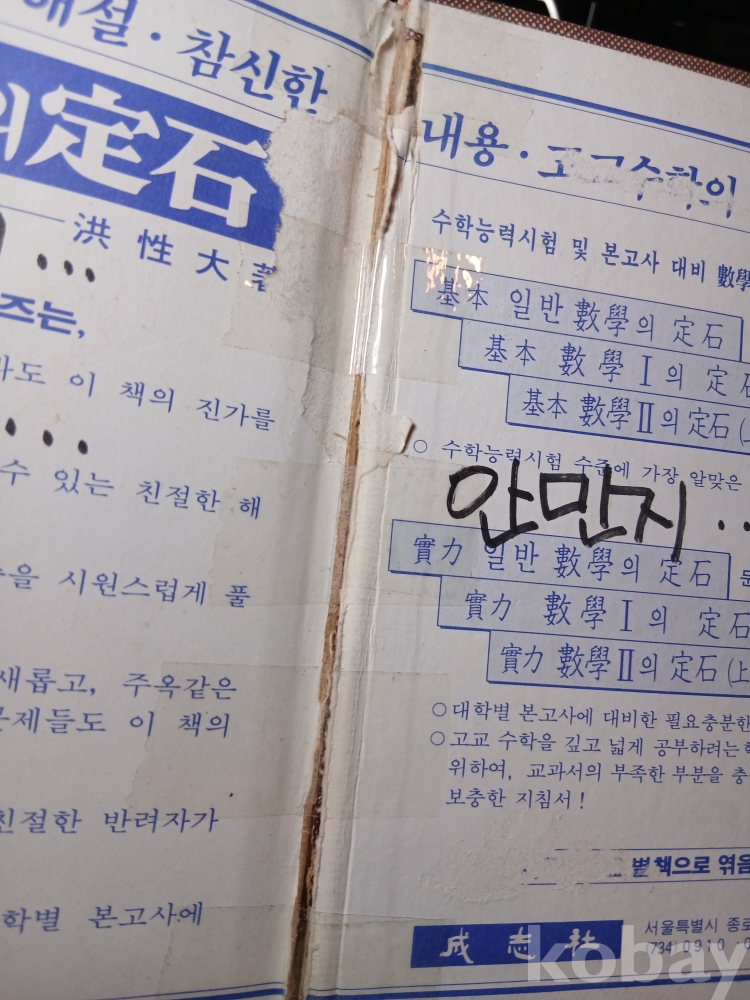 해설 · 참신한
의 定石
洪性大著
...
즈는,
도 이 책의 진가를
....
수 있는 친절한 해
을 시원스럽게 풀
새롭고, 주옥같은
문제들도 이 책의
친절한 반려자가
학별 본고사에
내용 · 고교수학의
수학능력시험 및 본고사 대비 數學
基本 일반 數學의 定石
基本 數學 I 의 定石
基本 數學 II 의 定石 (上
○ 수학능력시험 수준에 가장 알맞은
안만지 ..
實力 일반 數學의 定石
實力 數學 I 의 定石
實力 數學 II 의 定石 (上
○ 대학별 본고사에 대비한 필요충분한
○ 고교 수학을 깊고 넓게 공부하려는
위하여, 교과서의 부족한 부분을 충
보충한 지침서 !
별책으로 엮음
成志社
서울특별시 종로
(734) 0910
kobay